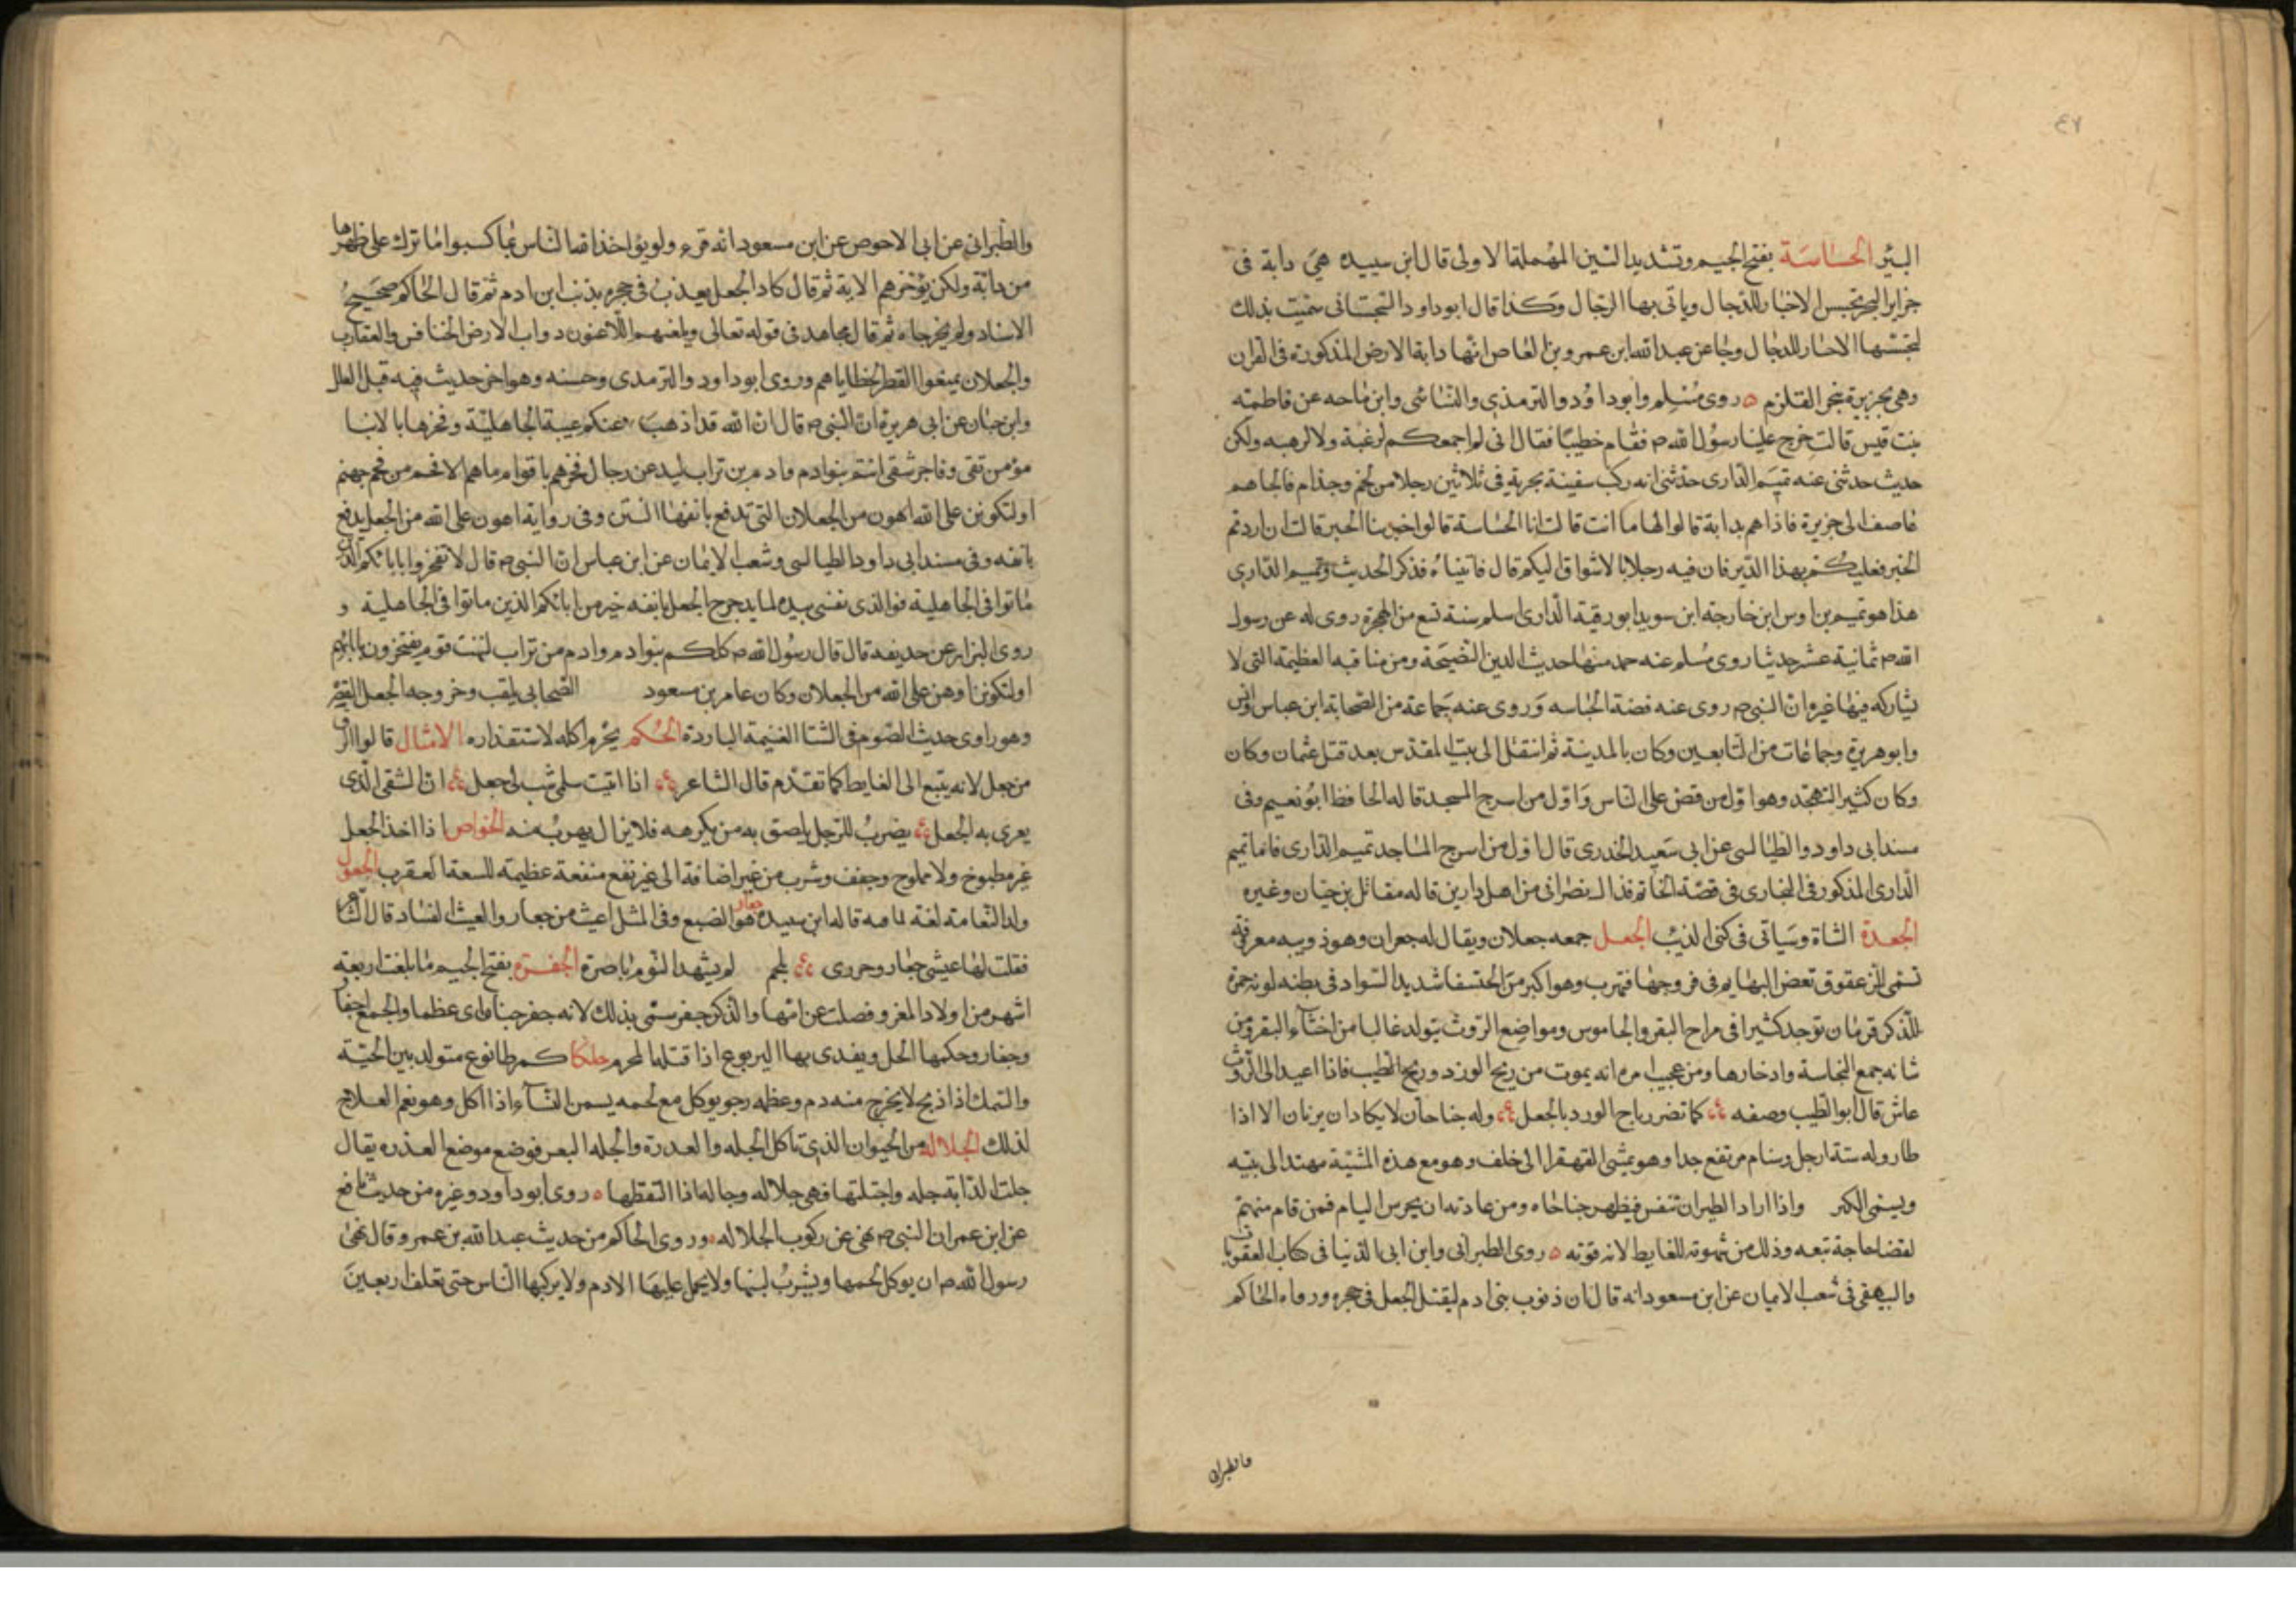 ٤٧
البئر الجساسة بفتح الجيم وتشديد السين المهملة الاولى قال ابن سيده هي دابة فى
جزاير البحر تجسس الاخبار للدجال وياتى بها الرجال وكذا قال ابو داود السجستانى سميت بذلك
لتجسسها الاخبار للدجال وجا عن عبد الله ابن عمرو بن العاص انها دابة الارض المذكورة فى القران
وهى بجزيرة ببحر القلزم ه روى مسلم وابو داؤد والترمذي والنسائى وابن ماجه عن فاطمة
بنت قيس قالت خرج علينا رسول الله م فقام خطيبًا فقال انى لم اجمعكم لرغبة ولا لرهبه ولكن
حديث حدثنى عنه تميم الدارى حدثنى انه ركب سفينة بحرية فى ثلاثين رجلا من لخم وجذام فالجاهم
عاصف الى جزيرة فاذا هم بدابة قالوا لها ما انت قالت انا الجساسة قالوا اخبرينا الخبر قالت ان اردتم
الخبر فعليكم بهذا الدير فان فيه رجلا بالاشواق اليكم قال فاتيناه فذكر الحديث وتميم الدارى
هذا هو تميم بن اوس ابن خارجة ابن سويد ابو رقية الدارى اسلم سنة تسع من الهجرة روى له عن رسول
الله م ثمانية عشر حديثا روى مسلم عنه منها حديث الدين النصيحة ومن مناقبه العظيمة التى لا
يشاركه فيها غيره ان النبى م روى عنه قصة الجساسه وروى عنه جماعة من الصحابة ابن عباس وانس
وابو هريرة وجماعات من التابعين وكان بالمدينة ثم انتقل الى بيت المقدس بعد قتل عثمان وكان
وكان كثير التهجد وهو اول من قص على الناس واول من اسرج المسجد قاله الحافظ ابو نعيم وفى
مسند ابى داود والطيالسى عن ابى سعيد الخدرى قال اول من اسرج المساجد تميم الدارى فاما تميم
الدارى المذكور فى البخارى فى قصة الجام فذاك نصرانى من اهل دارين قاله مقاتل بن حيان وغيره
الجعدة الشاة وسياتى فى كنى الذئب الجعل جمعه جعلان ويقال له جعران وهو دويبه معرفة
تسمى الزعقوق تعض البهايم فى فروجها فتهرب وهو اكبر من الخنفسا شديد السواد فى بطنه لون حمرة
للذكر قرنان توجد كثيرا فى مراح البقر والجاموس ومواضع الروث يتولد غالبا من اخثاء البقر ومن
شانه جمع النجاسة وادخارها ومن عجيب امره انه يموت من ريح الورد وريح الطيب فاذا اعيد الى الروث
عاش قال ابو الطيب وصفه كما تضر رياح الورد بالجعل وله جناحان لا يكادان يريان الا اذا
طار وله ستة ارجل وسنام مرتفع جدا وهو يمشى القهقرا الى خلف وهو مع هذه المشية مهتد الى بيته
ويسمى الكبر واذا اراد الطيران تنفس فيظهر جناحاه ومن عادته ان يحرس النيام فمن قام منهم
لقضا حاجة تبعه وذلك من شهوته للغايط لانه قوته ه روى الطبرانى وابن ابى الدنيا فى كتاب العقوبات
والبيهقى فى شعب الايمان عن ابن مسعود انه قال ان ذنوب بنى ادم ليقتل الجعل فى جحره ورواه الحاكم
والطبرانى
والطبرانى عن ابى الاحوص عن ابن مسعود انه قرء ولو يؤاخذ الله الناس بما كسبوا ما ترك على ظهرها
من دابة ولكن يؤخرهم الاية ثم قال كاد الجعل يعذب فى جحره بذنب ابن ادم ثم قال الحاكم صحيح
الاسناد ولم يخرجاه ثم قال مجاهد فى قوله تعالى ويلعنهم اللاعنون دواب الارض الخنافس والعقارب
والجعلان يمنعوا القطر بخطاياهم وروى ابو داود والترمدى وحسنه وهو اخر حديث فيه قبل العلل
وابن حبان عن ابى هريرة ان النبى م قال ان الله قد اذهب عنكم عيبة الجاهلية وفخرها بالابا
مؤمن تقى وفاجر شقى انتم بنو ادم وادم من تراب ليدعن رجال فخرهم باقوام ما هم الا فحم من فحم جهنم
او لتكونن على الله اهون من الجعلان التى تدفع بانفها النتن وفى رواية اهون على الله من الجعل يدفع
بانفه وفى مسند ابى داود الطيالسى وشعب الايمان عن ابن عباس ان النبى م قال لا تفخروا بابائكم الذين
ماتوا فى الجاهلية فوالذى نفسى بيده لما يدحرج الجعل بانفه خير من ابائكم الذين ماتوا فى الجاهلية و
روى البزار عن حديفه قال قال رسول الله م كلكم بنو ادم وادم من تراب لينتهين قوم يفتخرون بابائهم
او لتكونن اوهن على الله من الجعلان وكان عامر بن مسعود الصحابى يلقب وخروجه الجعل القصر
وهو راوى حديث الصوم فى الشتا الغنيمة الباردة الحكم يحرم اكله لاستقذاره الامثال قالوا الزق
من جعل لانه يتبع الى الغايط كما تقدم قال الشاعر اذا اتيت سلمى شب لى جعل ان الشقى الذى
يعرى به الجعل يضرب للرجل يلصق به من يكرهه فلا يزال يهرب منه الخواص اذا اخذ الجعل
غير مطبوخ ولا مملوح وجفف وشرب من غير اضافة الى غيره نفع منفعة عظيمة للسعة العقرب الجعول
ولد النعامة لغة يمانيه قاله ابن سيده جعار هو الضبع وفى المثل اعيث من جعار والعيث الفساد قال الشاعر
فقلت لها عيشى جعار وجررى بلحم لم يشهد اليوم ناصرة الجفرة بفتح الجيم ما بلغت اربعة
اشهر من اولاد المعز وفصلت عن امها والذكر جفر سمى بذلك لانه جفر جنباه اى عظما والجمع اجفار
وجفار وحكمها الحل ويفدى بها اليربوع اذا قتله المحرم جلكا كمرطا نوع متولد بين الحية
والسمك اذا ذبح لا يخرج منه دم وعظمه رخو يوكل مع لحمه يسمن النسآء اذا اكل وهو نعم العلاج
لذلك الجلالة من الحيوان الذى تاكل الجله والعدرة والجله البعر فوضع موضع العذره يقال
جلت الدابة جله واجتلتها فهى جلاله وجاله اذا التقطها ه روى ابو داود وغيره من حديث نافع
عن ابن عمر ان النبى م نهى عن ركوب الجلاله وروى الحاكم من حديث عبد الله بن عمرو قال نهى
رسول الله م ان يوكل لحمها ويشرب لبنها ولا يحمل عليها الادم ولا يركبها الناس حتى تعلف اربعين